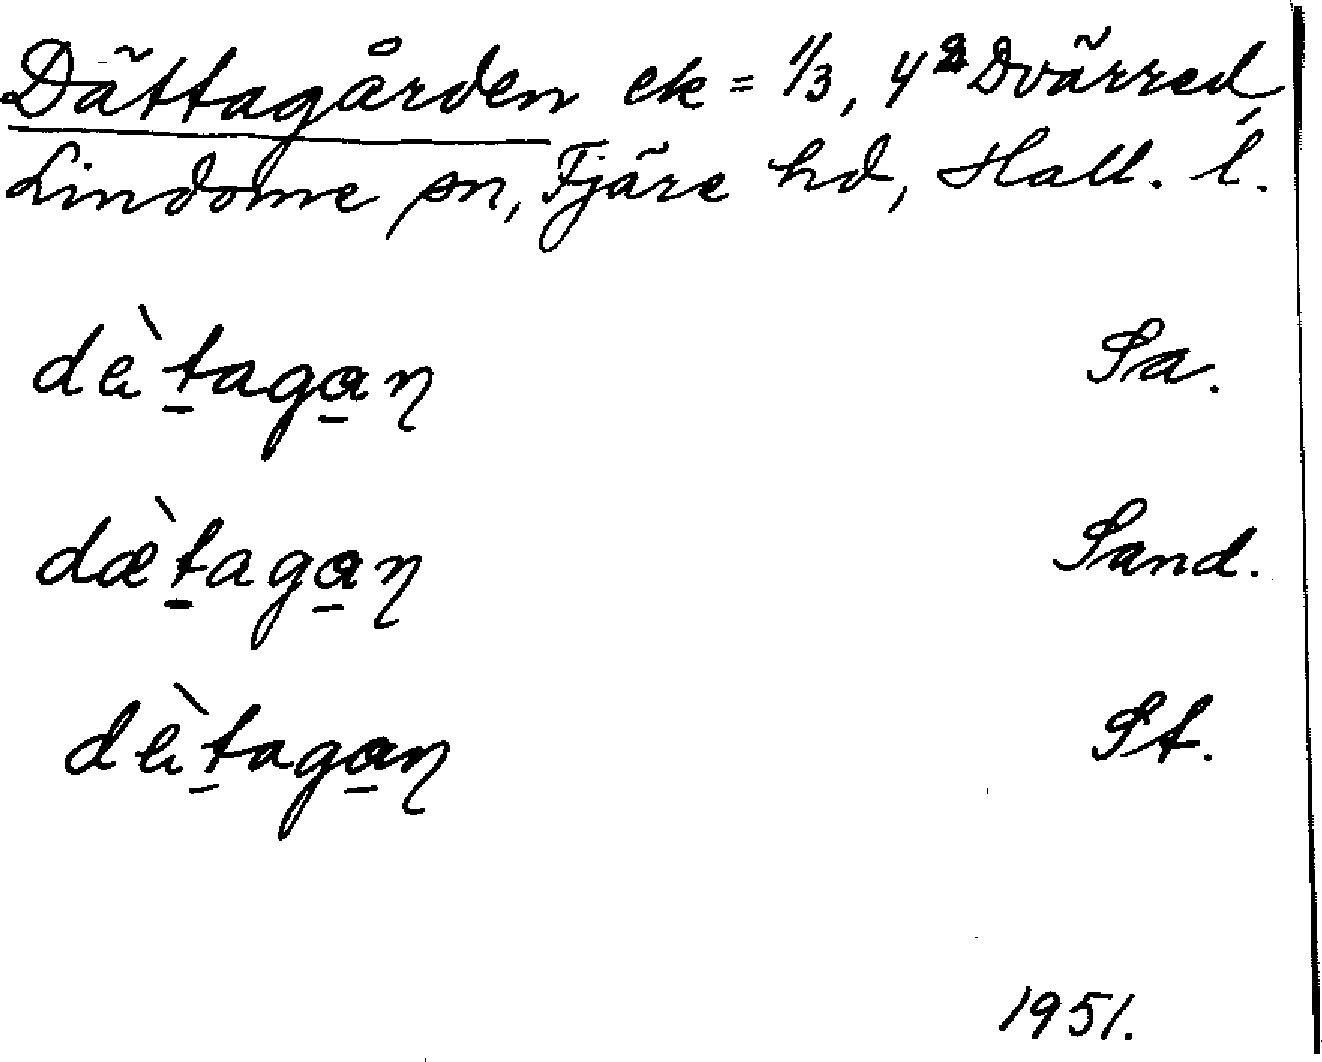 Dättagården ek = 1/3, 4² Dvärred,
Lindome sn, Fjäre hd, Hall. l.
dɛ̀t̠aga̠ɳ Sa.
dæ̀t̠aga̠ɳ Sand.
dɛ̀t̠aga̠ɳ St.
1951.